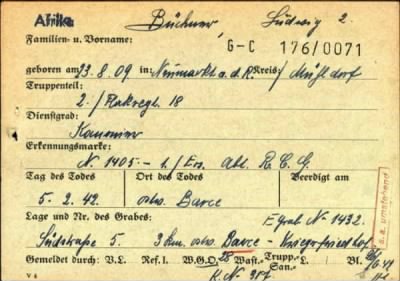 Afrika Büchner, Ludwig 2.
Familien- u. Vorname:
G-C 176/0071
geboren am 23.8.09 in Neumarkt a.d.R. Kreis: Mühldorf
Truppenteil:
2./Flakregt. 18
Dienstgrad:
Kanonier
Erkennungsmarke:
N. 1405 - 1./Ers. Abt. R.C.G.
Tag des Todes Ort des Todes Beerdigt am
5.2.42. ostw. Barce
Lage und Nr. des Grabes: Egrab No 1432.
Südstraße 5. 3 km ostw. Barce -
Gemeldet durch: V.L. Ref. I. W.G.O. 28 Wast.- Trupp.- San.- L. Bl.
K.N. 317
V 4
s. a. umstehend